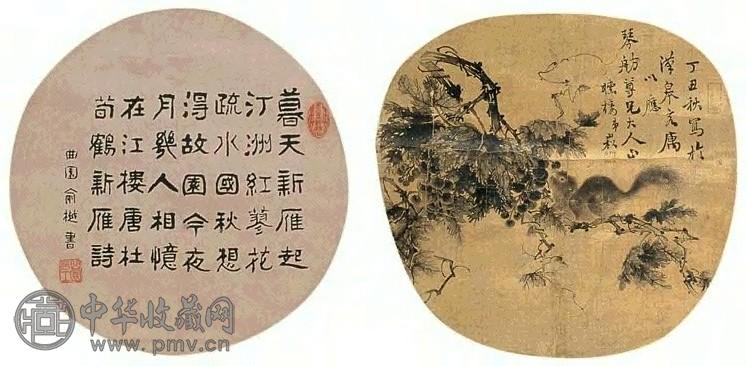 暮天新雁起
汀洲紅蓼花
疏水國秋想
得故園今夜
月幾人相憶
在江樓唐杜
荀鶴新雁詩
曲園俞樾書
丁丑秋寫於
漢皋客寓
以應
琴舫尊兄大人正
樓弟
中华收藏网
www.pmv.cn